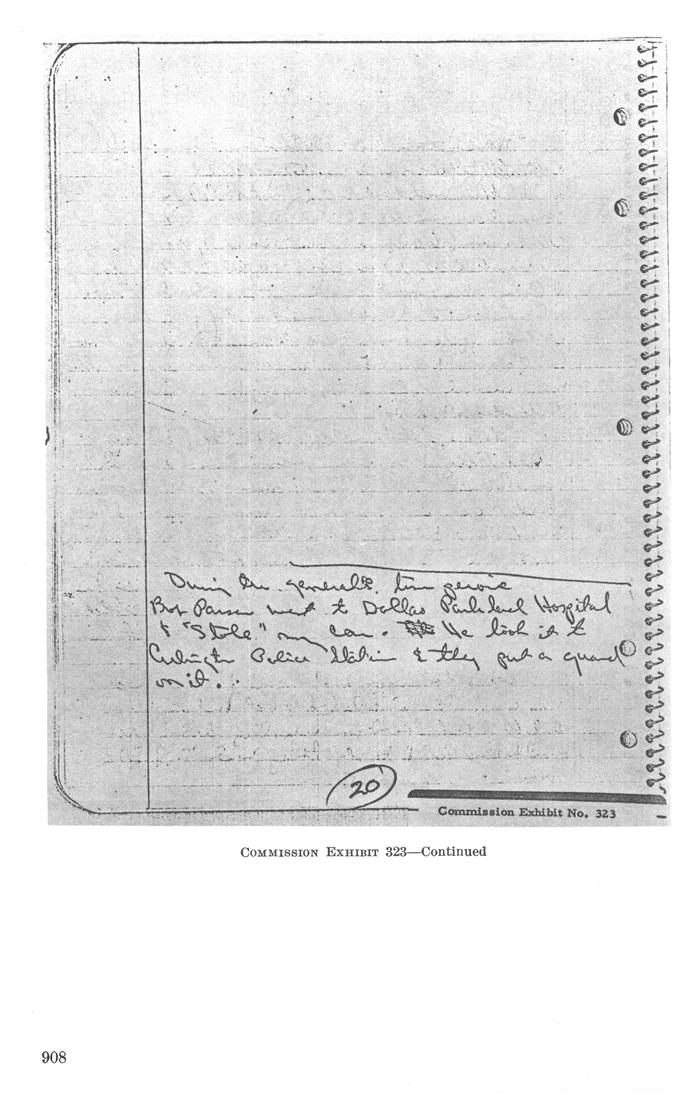 During the general
Bob Parsons went to Dallas Parkland Hospital
& "Stole" my car. He took it to
Arlington Police Station & they put a guard
on it.
20
Commission Exhibit No. 323
COMMISSION EXHIBIT 323—Continued
908